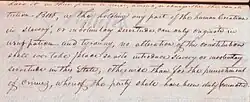 tion that, as the holding any part of the human creation
in slavery, or involuntary servitude can only originate in
usurpation and tyranny, no alteration of this constitution
shall ever take place so as to introduce slavery or involuntary
servitude in this State, otherwise than for the punishment
of crimes, whereof the party shall have been duly convicted